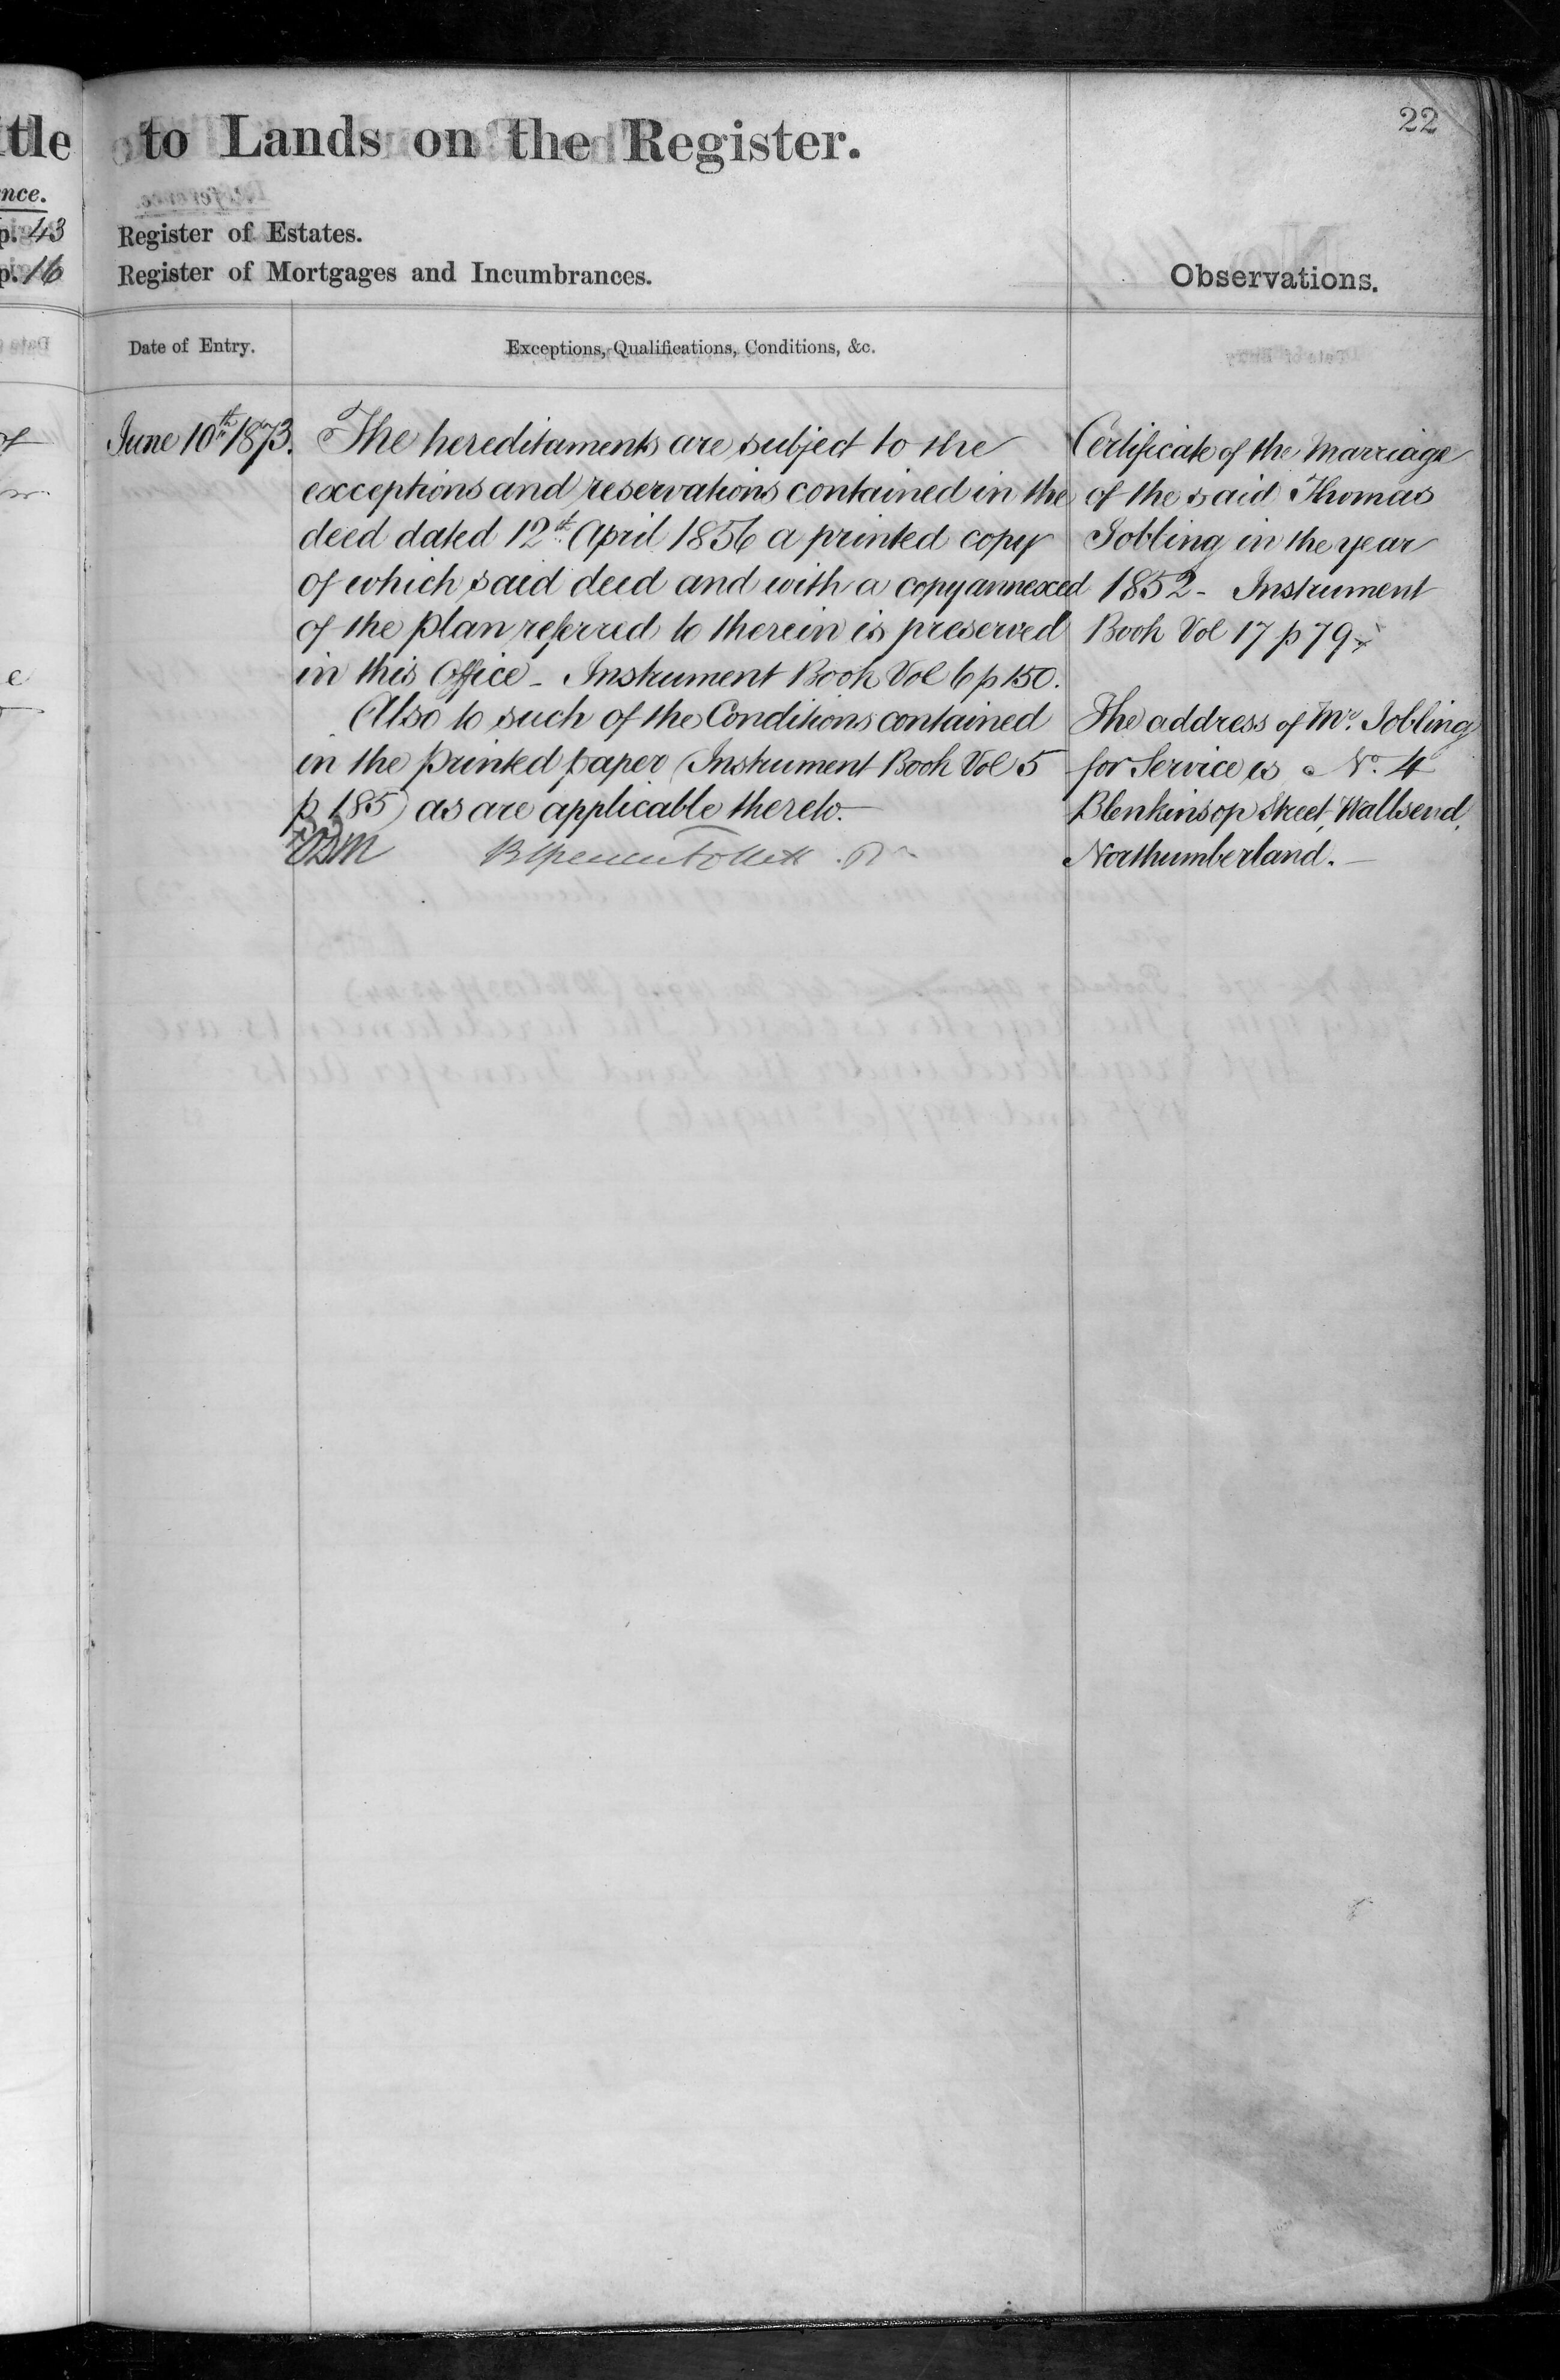 22
tle
to Lands on the Register.
nce.
p. 43
Register of Estates.
p. 16
Register of Mortgages and Incumbrances.
Observations.
Date of Entry.
Exceptions, Qualifications, Conditions, &c.
June 10th 1873.
The hereditaments are subject to the
exceptions and reservations contained in the
deed dated 12th April 1856 a printed copy
of which said deed and with a copy annexed
of the plan referred to therein is preserved
in this Office - Instrument Book Vol 6 p 150.
Also to such of the Conditions contained
in the printed paper (Instrument Book Vol 5
p 185) as are applicable thereto.—
Certificate of the Marriage
of the said Thomas
Jobling in the year
1852 - Instrument
Book Vol 17 p 79
The address of Mr. Jobling
for Service is No. 4
Blenkinsop Street, Wallsend,
Northumberland.—